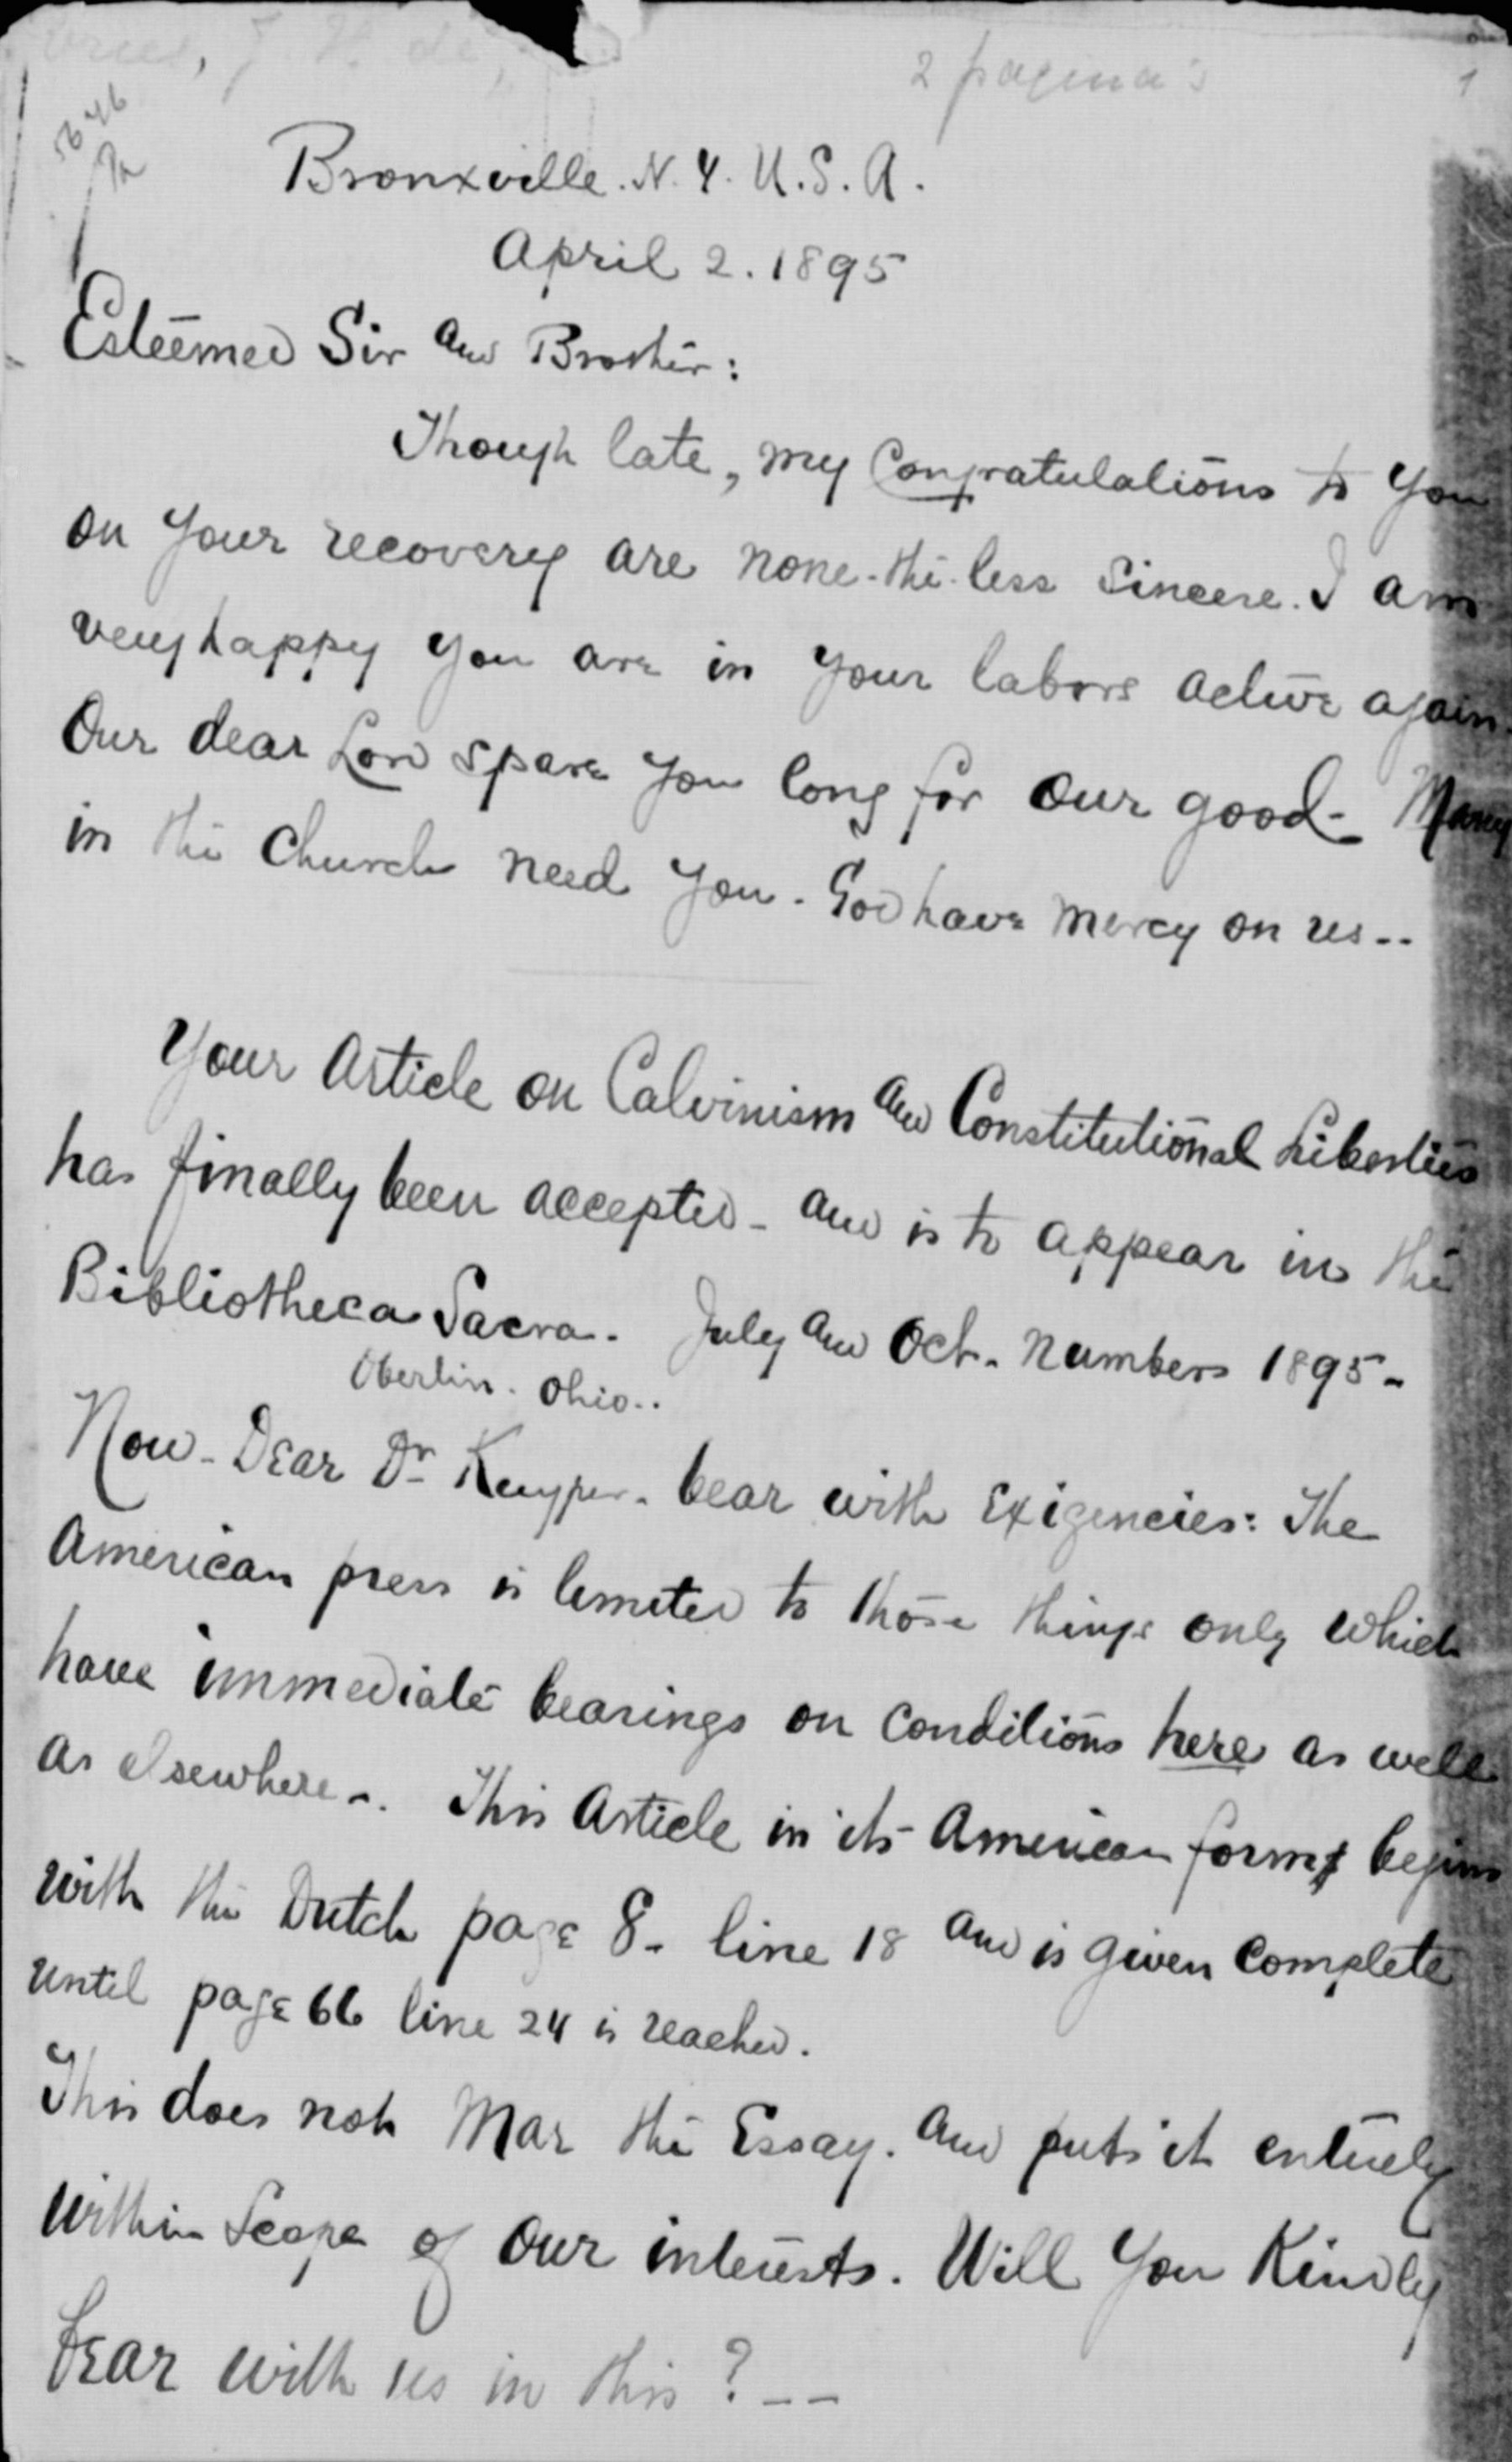 Vries, J. H. de,
2 pagina's
1
5646
Bronxville. N. Y. U. S. A.
April 2. 1895
Esteemed Sir and Brother:
Though late, my Congratulations to you
on your recovery are none-the-less sincere. I am
very happy you are in your labors active again.
Our dear Lord spare you long for our good - Many
in the Church need you. God have mercy on us --
Your Article on Calvinism and Constitutional Liberties
has finally been accepted - and is to appear in the
Bibliotheca Sacra. July and Oct. numbers 1895 -
Oberlin. Ohio..
Now - Dear Dr Kuyper - bear with Exigencies: The
American press is limited to those things only which
have immediate bearings on conditions here as well
as elsewhere -. This Article in its American form begins
with the Dutch page 8 - line 18 and is given complete
until page 66 line 24 is reached.
This does not mar the Essay. and puts it entirely
within Scope of our interests. Will you Kindly
bear with us in this? --